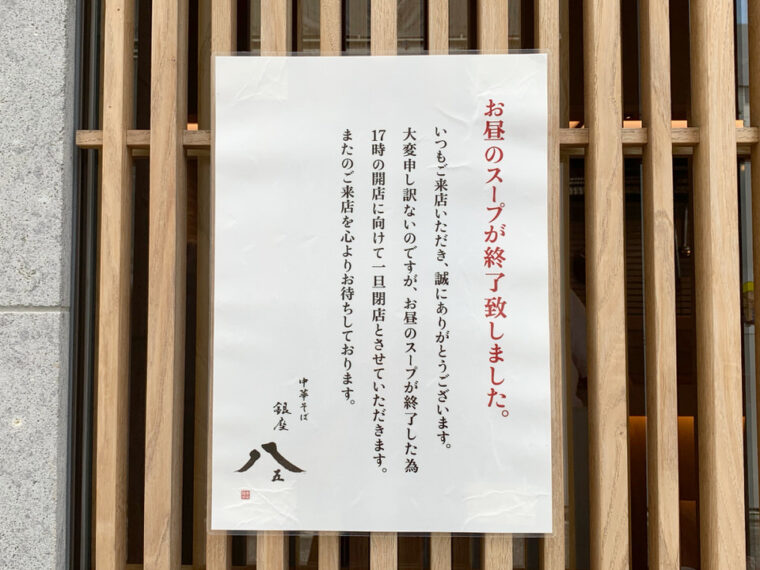 お昼のスープが終了致しました。
いつもご来店いただき、誠にありがとうございます。
大変申し訳ないのですが、お昼のスープが終了した為
17時の開店に向けて一旦閉店とさせていただきます。
またのご来店を心よりお待ちしております。
中華そば
銀座
八五